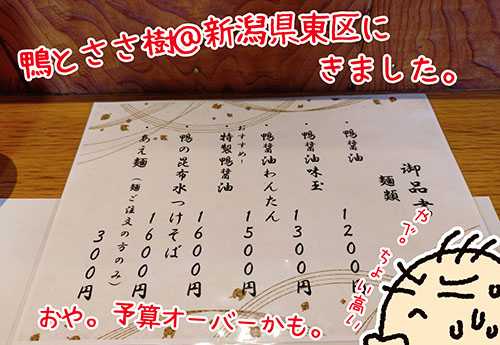 鴨とささ樹@新潟県東区に
きました。
御品
麺類
・鴨醤油 1200円
・鴨醤油味玉 1300円
・鴨醤油わんたん 1500円
おすすめ!
・特製鴨醤油 1600円
・鴨の昆布水つけそば 1600円
・あえ麺(麺ご注文の方のみ) 300円
ちょい高い
おや。予算オーバーかも。